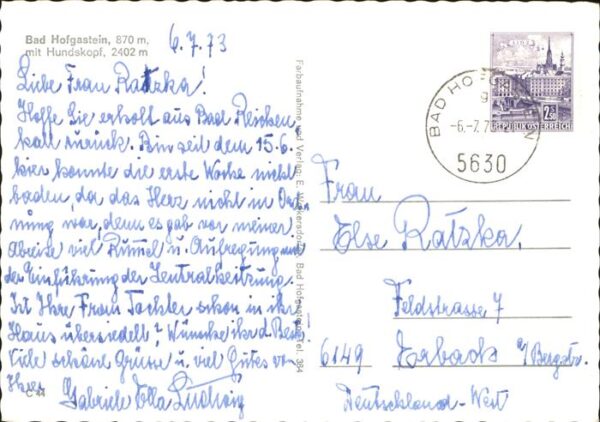 Bad Hofgastein, 870 m,
mit Hundskopf, 2402 m
6.7.73
Liebe Frau Ratzka!
Hoffe Sie erholt aus Bad Reichen
hall zurück. Bin seit dem 15.6.
hier konnte die erste Woche nicht
baden, da das Herz nicht in Ord-
nung war, denn es gab vor meiner
Abreise viel Rummel u. Aufregung
der Einführung der Zentralheitzung.
Ist Ihre Frau Tochter schon in ihr
Haus übersiedelt? Wünsche ihr d. Beste
Viele schöne Grüsse u. viel Gutes
Ihre Gabriele Ella Ludwig
Farbaufnahme und Verlag: E. Bad Hofgastein, Tel. 384
REPUBLIK ÖSTERREICH
BAD HOFGASTEIN
-6.-7.7
5630
Frau
Else Ratzka,
Feldstrasse 7
6149 Erbach a/Bergstr.
Deutschland-West